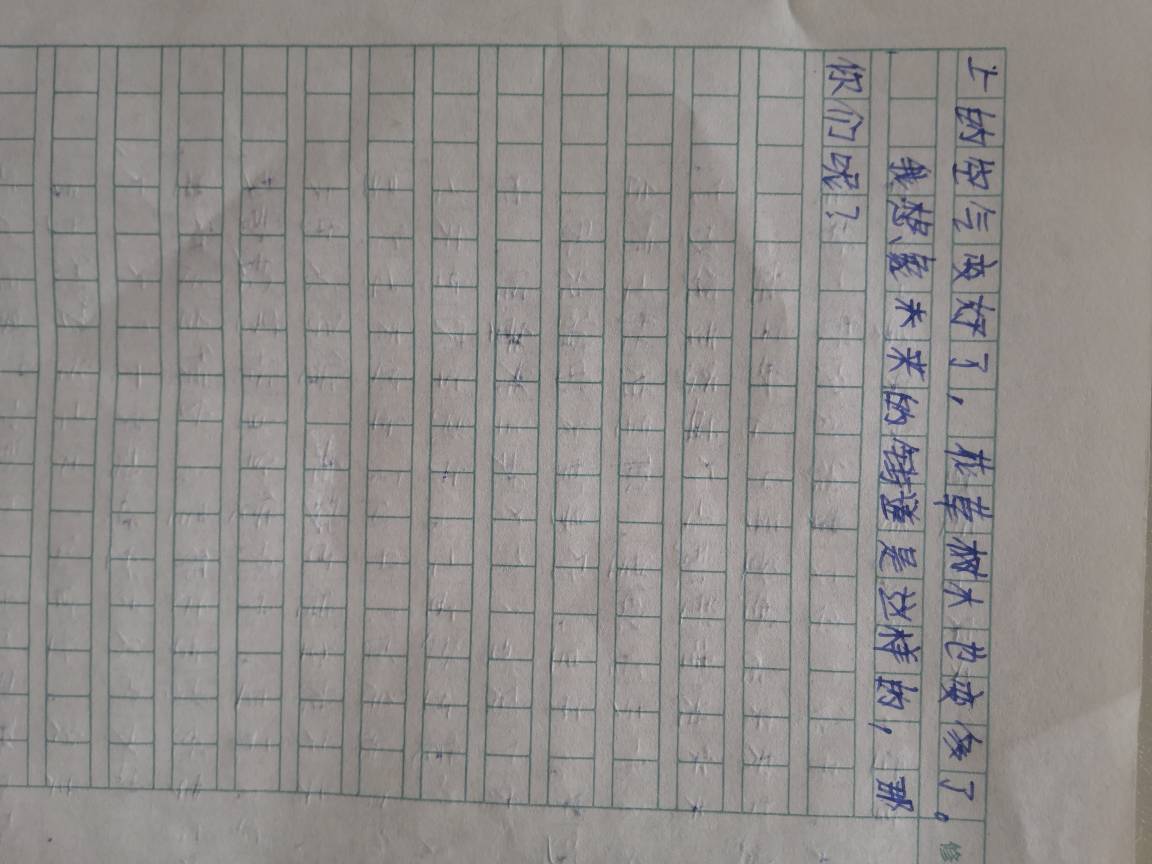 上的空气变好了，花草树木也变多了。
我想象未来的街道是这样的，那
你们呢？
修